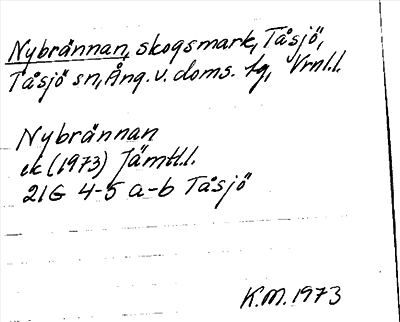 Nybrännan, skogsmark, Tåsjö,
Tåsjö sn, Ång. v. doms. fg, Vrnl.l.
Nybrännan
ek (1973) Jämtl.l.
21G 4-5 a-b Tåsjö
K.M. 1973